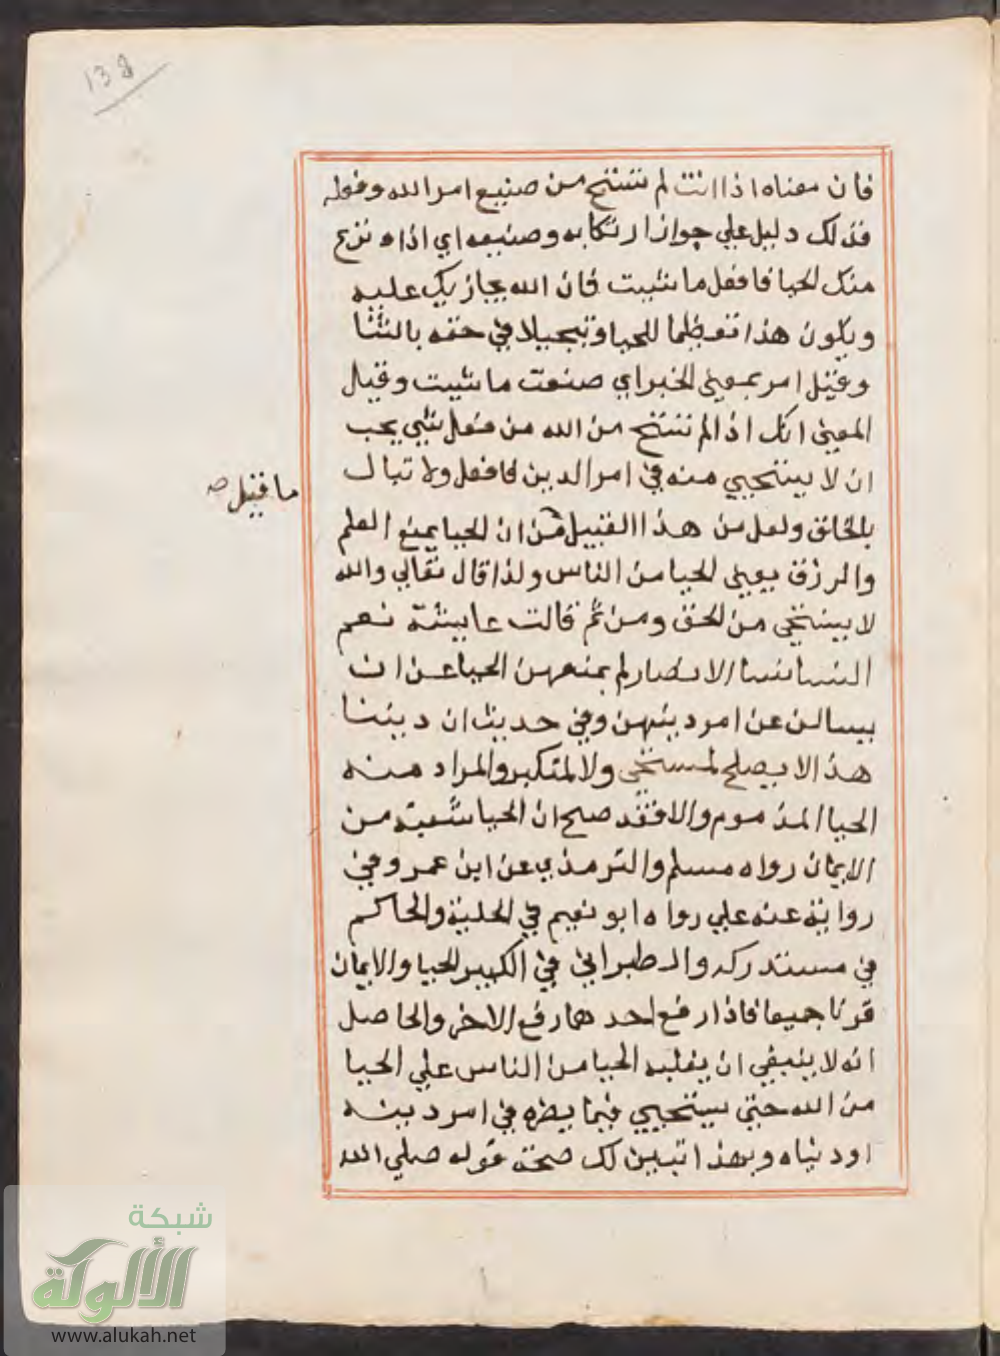 138
فان معناه اذا انت لم تستح من صنيع امر الله وفعله
فذلك دليل علي جواز ارتكابه وصنيعه اي اذا نزع
منك الحيا فافعل ما شيت فان الله يجازيك عليه
ويكون هذا تعظيما للحيا وتبجيلا في حقه بالثنا
وقيل امر بمعني الخبر اي صنعت ما شيت وقيل
المعني انك اذا لم تستح من الله من فعل شي يجب
ان لا يستحيي منه في امر الدين فافعل ولا تبال
بالخلق ولعل من هذا القبيل من ان الحيا يمنع العلم
ما قيل صح
والرزق يعني الحيا من الناس ولذا قال تعالي والله
لا يستحي من الحق ومن ثم قالت عايشة نعم
النسا نسا الانصار لم يمنعهن الحيا عن ان
يسالن عن امر دينهن وفي حديث ان ديننا
هذا لا يصلح لمستحي ولا لمتكبر والمراد منه
الحيا المذموم والا فقد صح ان الحيا شعبة من
الايمان رواه مسلم والترمذي عن ابن عمر وفي
رواية عنه علي رواه ابو نعيم في الحلية والحاكم
في مستدركه والطبراني في الكبير الحيا والايمان
قرنا جميعا فاذا رفع احدهما رفع الاخر والحاصل
انه لا ينبغي ان يغلبه الحيا من الناس علي الحيا
من الله حتي يستحيي فيما يضره في امر دينه
او دنياه وبهذا تبين لك صحة قوله صلي الله
شبكة
الألوكة
www.alukah.net